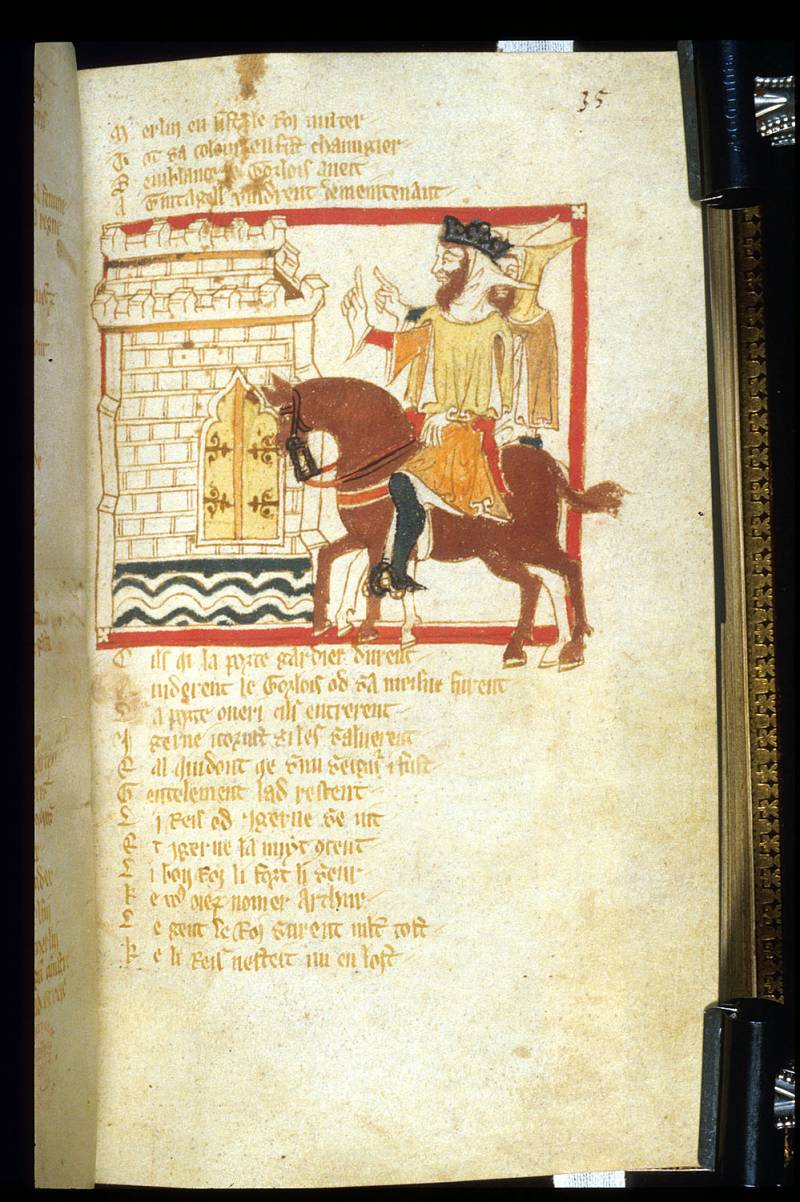 35
Merlin en fist le Roi muter
Tot sa colour en fist changier
Semblance de Gorlois aveit
A Tintagell vindrent demeintenant
Cils qi la porte gardier durent
Quiderent le Gorlois od sa meisne furent
La porte overi cils entrerent
Ygerne si les saluerent
El quidout qe seignr i fust
Gentelement lad resceut
Li Reis od ygerne se iut
Et ygerne la nuyt conceut
Li bon Roi li fort li seur
Ke vos oiez nomer Arthur
Le gent le Roi surent mlt tost
Ke li Reis nesteit nu en lost